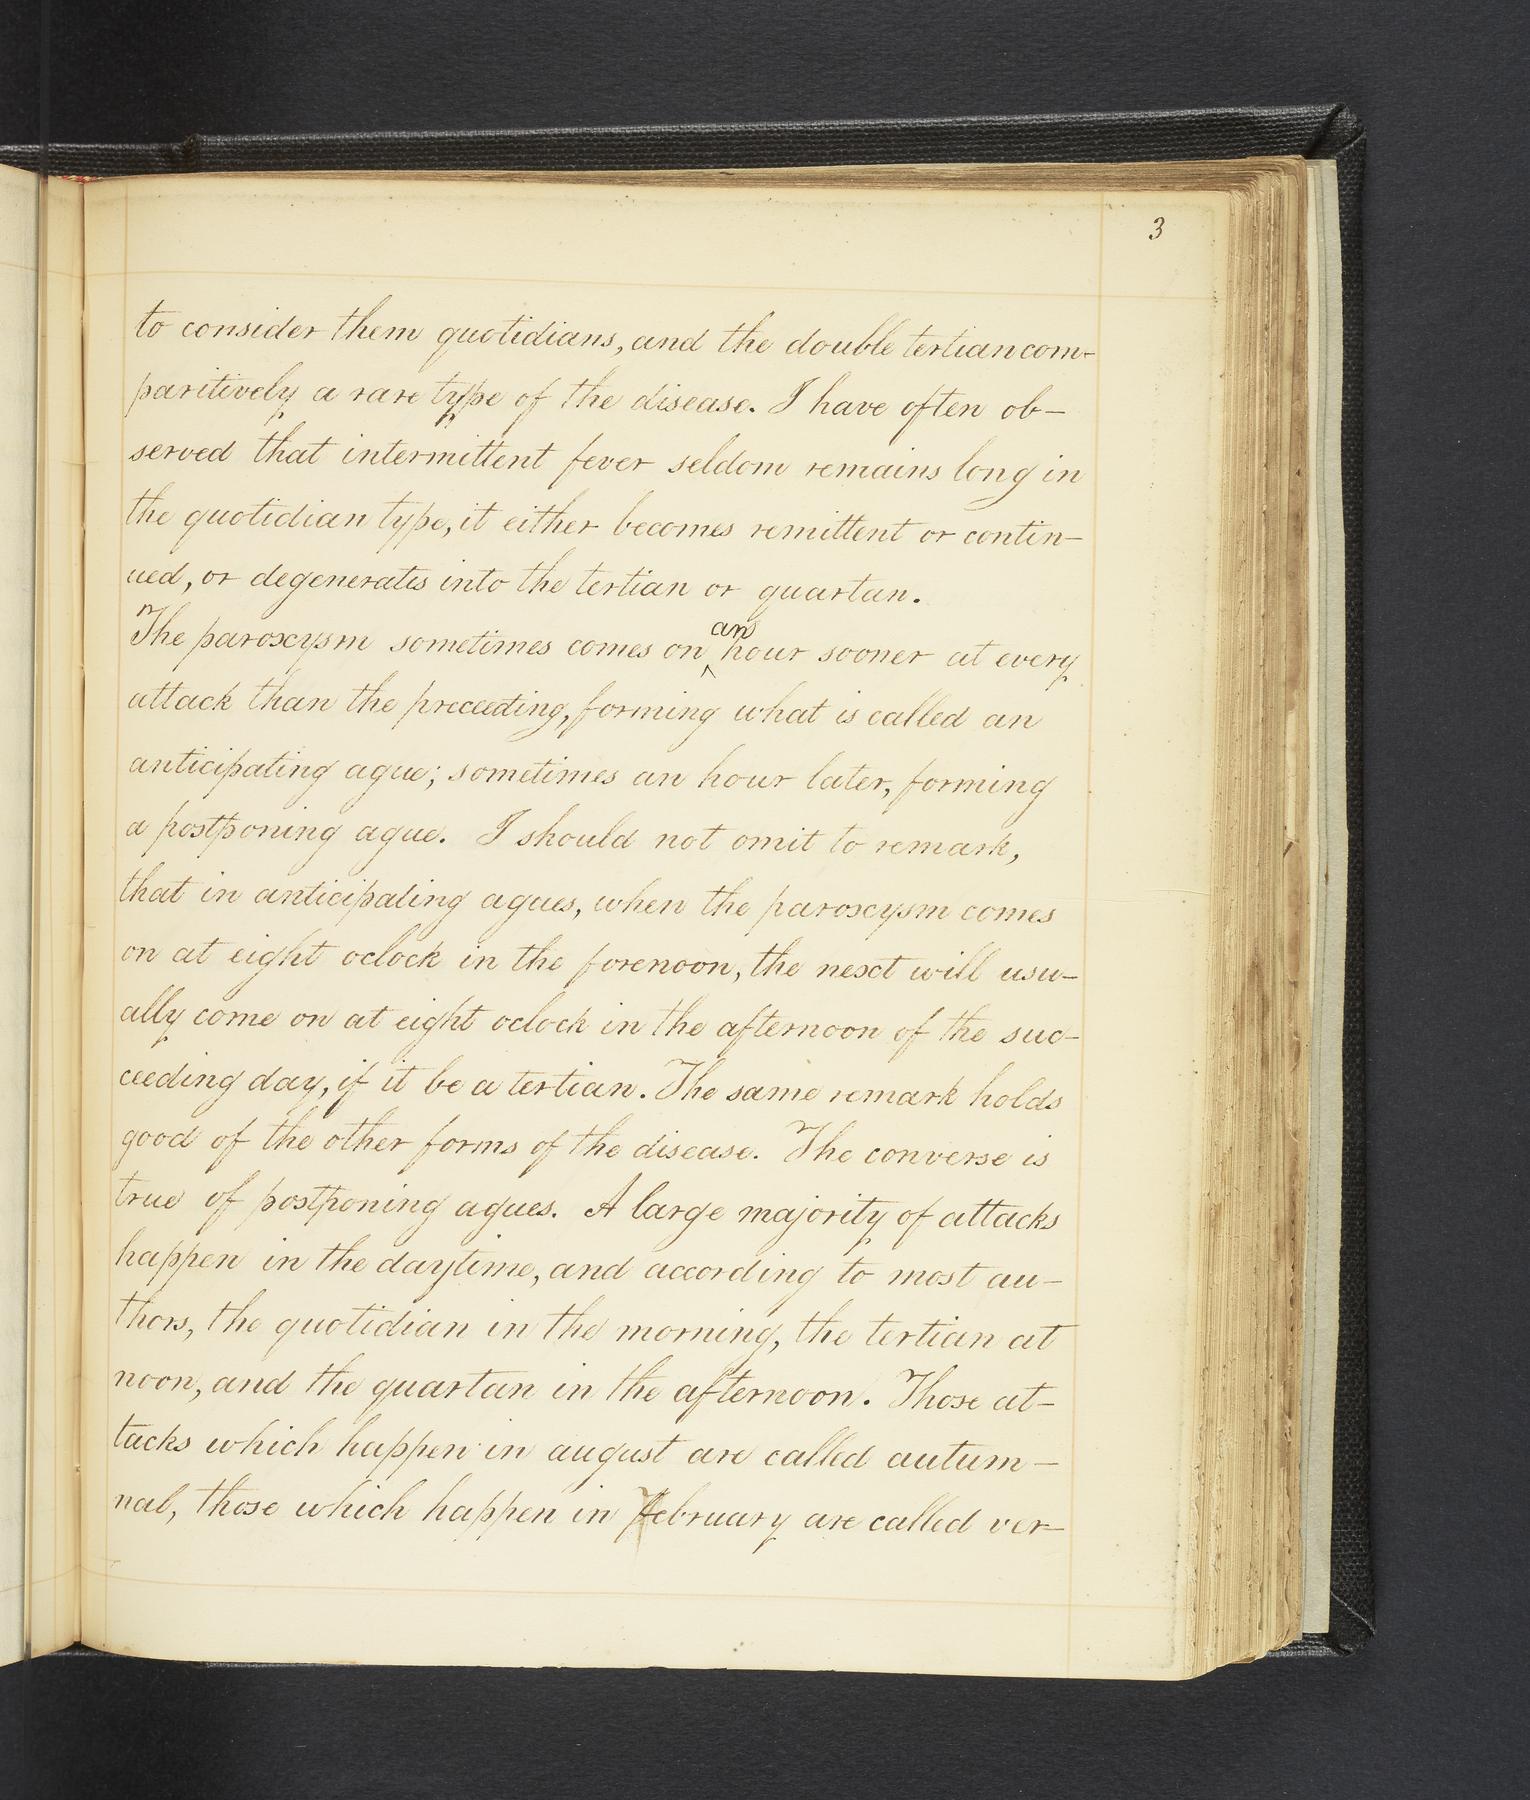 3
to consider them quotidians, and the double tertian com-
paritively a rare type of the disease. I have often ob-
served that intermittent fever seldom remains long in
the quotidian type, it either becomes remittent or contin-
ued, or degenerates into the tertian or quartan.
The paroxysm sometimes comes on an hour sooner at every
attack than the preceeding, forming what is called an
anticipating ague; sometimes an hour later, forming
a postponing ague. I should not omit to remark,
that in anticipating agues, when the paroxysm comes
on at eight oclock in the forenoon, the next will usu-
ally come on at eight oclock in the afternoon of the suc-
ceeding day, if it be a tertian. The same remark holds
good of the other forms of the disease. The converse is
true of postponing agues. A large majority of attacks
happen in the daytime, and according to most au-
thors, the quotidian in the morning, the tertian at
noon, and the quartan in the afternoon. Those at-
tacks which happen in august are called autum-
nal, those which happen in February are called ver-